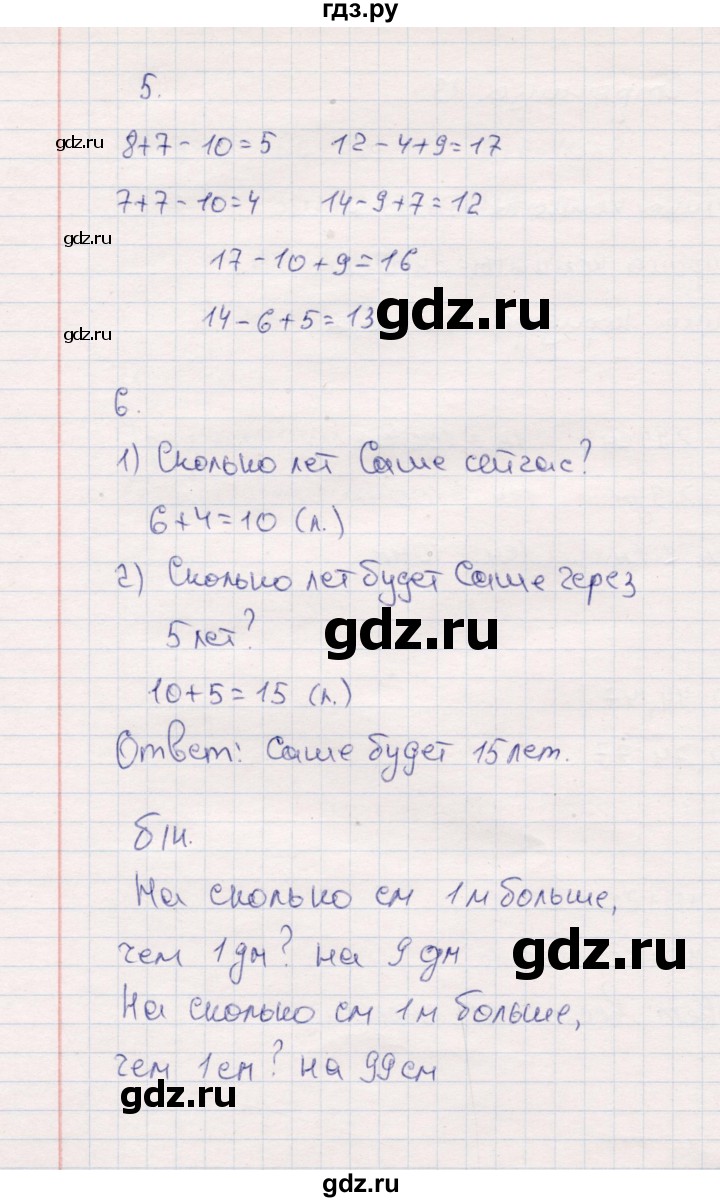 гдз.ру
5.
gdz.ru
8+7-10=5 12-4+9=17
7+7-10=4 14-9+7=12
gdz.ru
17-10+9=16
14-6+5=13
gdz.ru
gdz.ru
6.
1) Сколько лет Саше сейчас?
6+4=10 (л.)
2) Сколько лет будет Саше через
5 лет?
gdz.ru
10+5=15 (л.)
Ответ: Саше будет 15 лет.
б/н.
На сколько см 1 м больше,
чем 1 дм? на 9 дм
gdz.ru
На сколько см 1 м больше,
чем 1 см? на 99 см
gdz.ru
gdz.ru